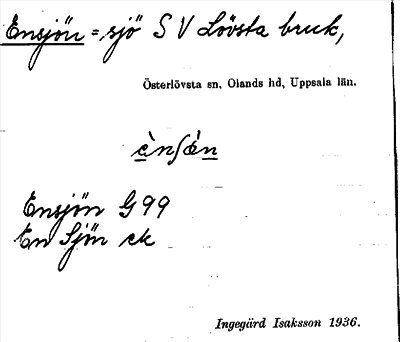 Ensjön = sjö S V Lövsta bruk,
Österlövsta sn, Olands hd, Uppsala län.
è̱nʃœ̀ṉ
Ensjön G 99
En Sjön ek
Ingegärd Isaksson 1936.